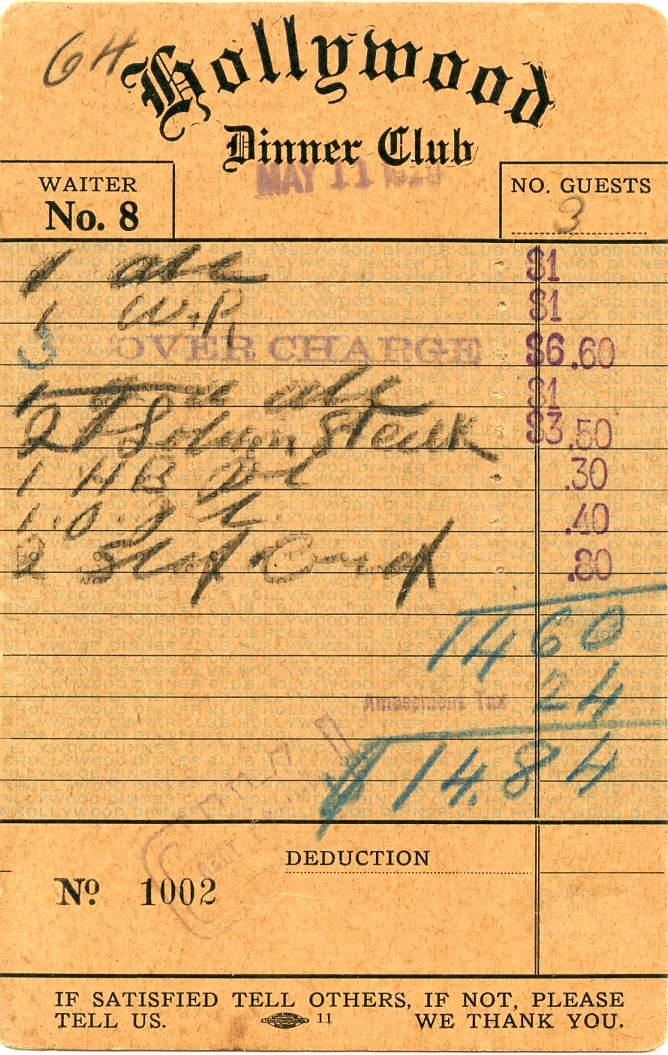 64
Hollywood
Dinner Club
MAY 11 1929
WAITER
No. 8
NO. GUESTS
3
1 ale $1
1 W.R. $1
3 OVER CHARGE $6.60
1 ale $1
2 Steak $3.50
1 H B .30
1 .40
2 .80
1460
Amusement Tax 24
$14.84
DEDUCTION
No 1002
IF SATISFIED TELL OTHERS, IF NOT, PLEASE
TELL US. 11 WE THANK YOU.